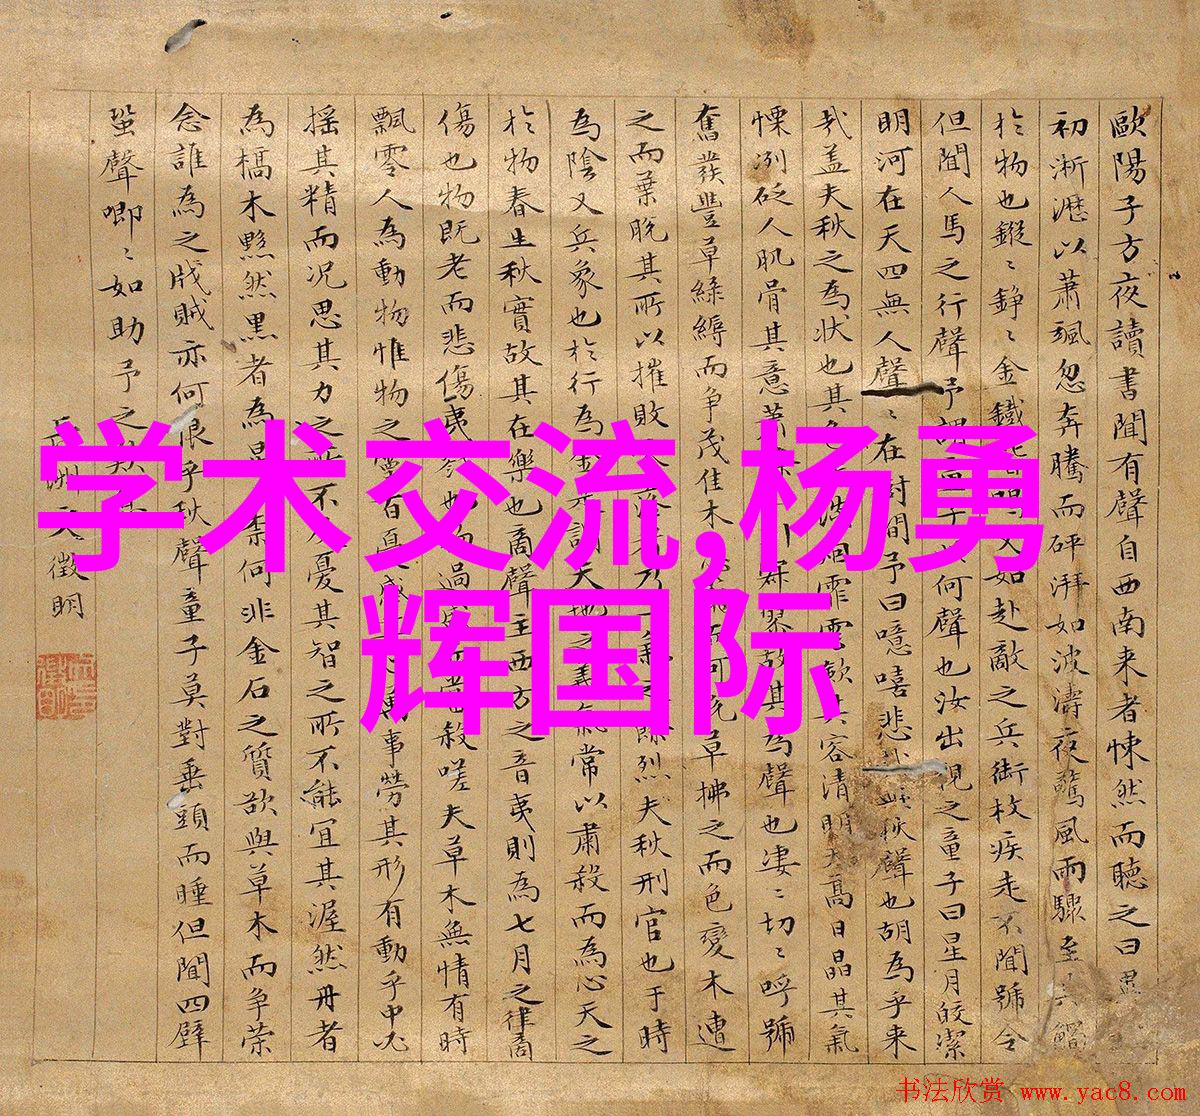 歐陽子方夜讀書聞有聲自西南来者悚然而聽之曰異
初淅瀝以蕭颯忽奔騰而砰湃如波濤夜驚風雨驟至其觸
於物也鏦〻錚〻金鐵又如赴敵之兵銜枚疾走不聞號令
但聞人馬之行聲予謂何聲也汝出視之童子曰星月皎潔
明河在天四無人聲〻在樹間予曰噫嘻悲哉此秋聲也胡為乎来
哉盖夫秋之為狀也其色烟霏雲歛其容清明天高日晶其氣
慄洌砭人肌骨其意蕭寂寥故其為聲也凄〻切〻呼號
奮發豐草綠縟而争茂佳木可草拂之而色變木遭
之而葉脫其所以摧敗乃餘烈夫秋刑官也于時
為陰又兵象也於行為天地之義氣常以肅殺而為心天之
於物春生秋實故其在樂也商聲主西方之音夷則為七月之律商
傷也物既老而悲傷夷也物過殺嗟夫草木無情有時
飄零人為動物惟物之靈百事勞其形有動乎中必
摇其精而况思其力之所不憂其智之所不能宜其渥然丹者
為槁木黟然黑者為何非金石之質欲與草木而争榮
念誰為之戕賊亦何恨乎秋聲童子莫對垂頭而睡但聞四壁
蛩聲唧〻如助予之歎
長洲文徵明
学术交流,杨勇
辉国际
书法欣赏 www.yac8.com